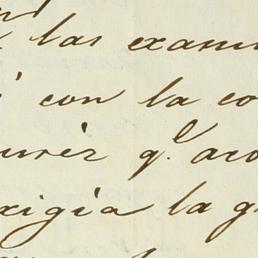 las exam
con la co
q.e aco
xigia la g